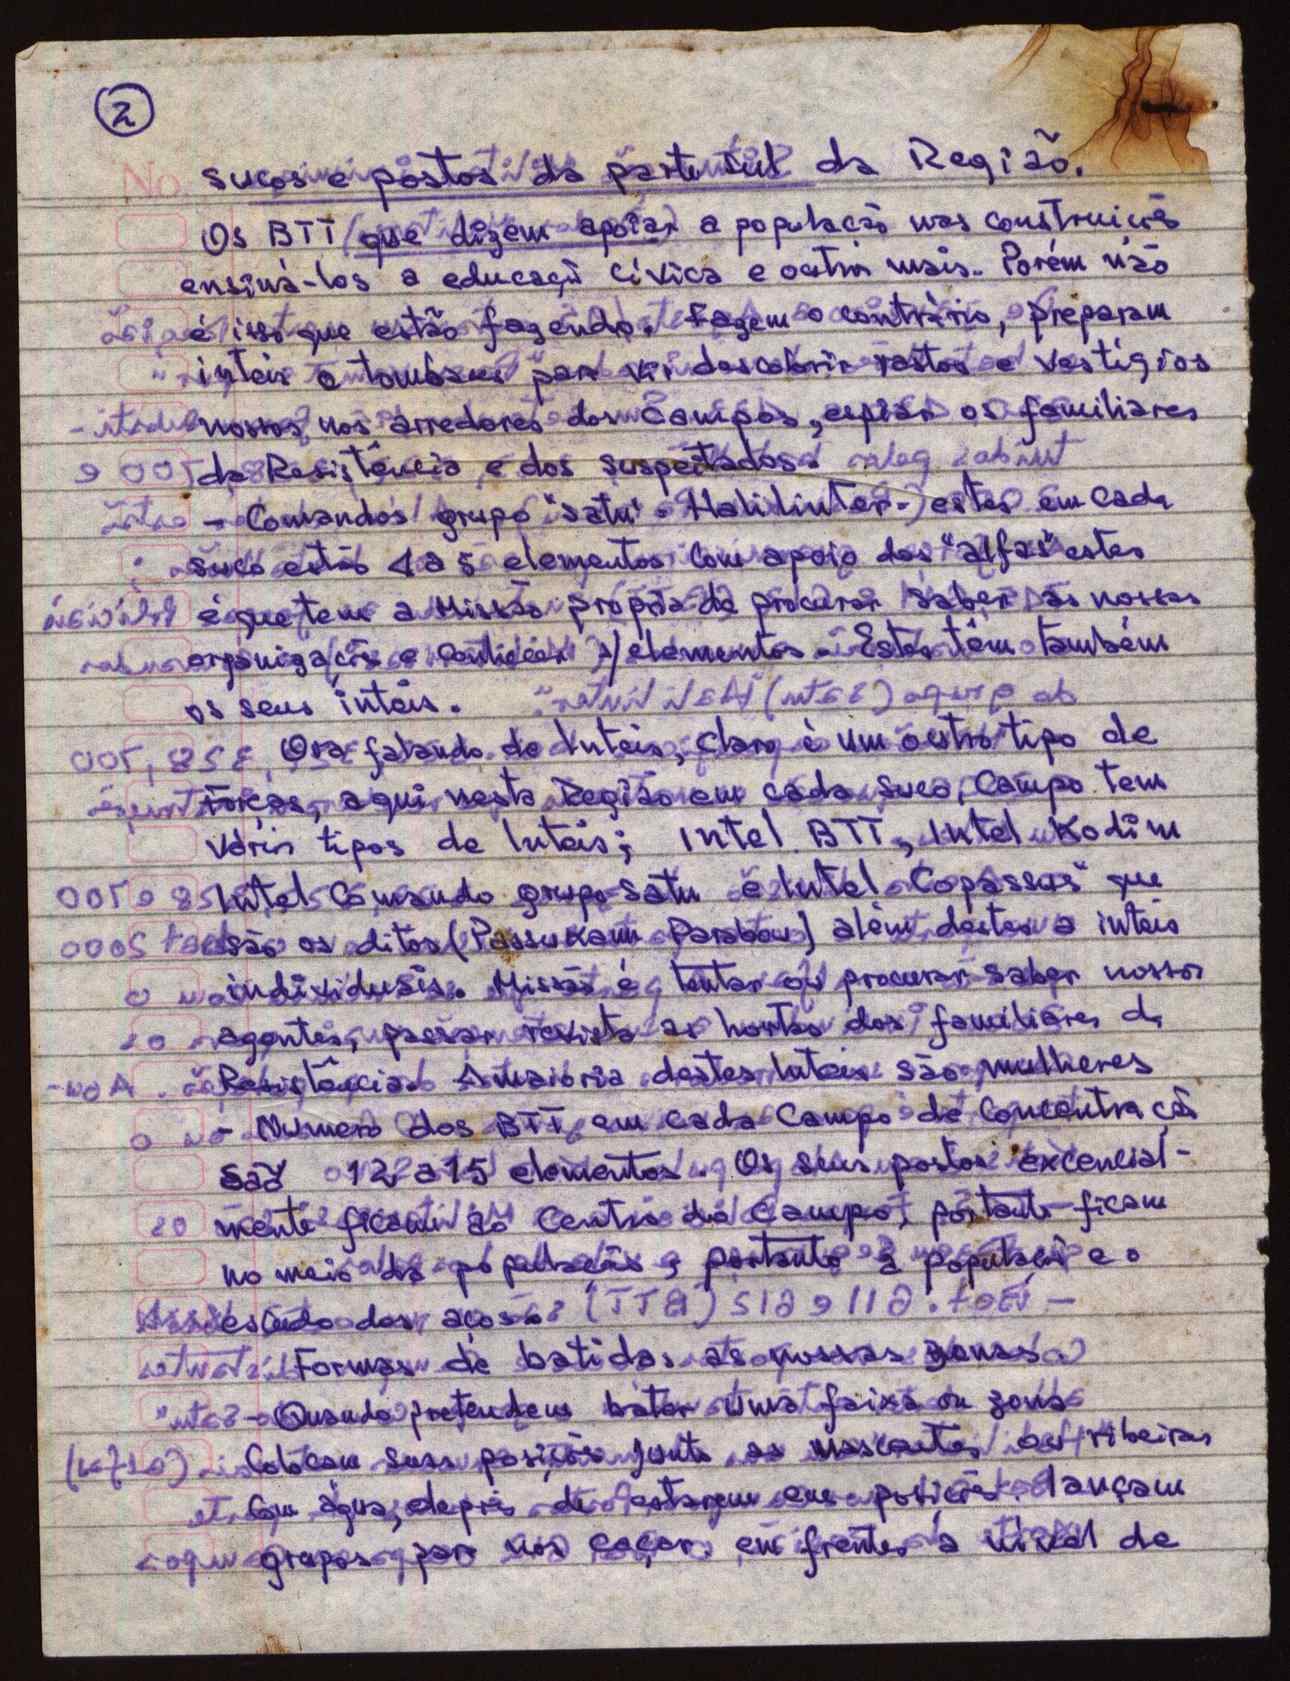 2
No
sucos e postos da parte sul da Região.
Os BTT (que dizem apoiar) a população nas construiçõs
ensiná-los a educaçã cívica e outra mais. Porém não
é isso que estão fazendo. Fazem o contrário, preparam
inteis e tombaus para vir descobrir rastos e vestígios
nossos nos arredores dos Campos, espiar os familiares
da Resistência e dos suspeitados.
- Comandos grupo "Satu". Halilinter-) estes em cada
suco estão 4 a 5 elementos com apoio dos "alfas" estes
é que tem a Missão propria de procurar saber as nossas
organizaçõs e conhecer elementos. Estes têm também
os seus inteis.
Ora falando de Inteis, claro é um outro tipo de
Forças, aqui nesta Região em cada suco, Campo tem
vários tipos de Inteis; Intel BTT, Intel Kodim
Intel Comando grupo-satu e Intel "Copassus" que
são os ditos (Passukann Parabou) além destes a inteis
individuais. Missão é tentar ou procurar saber nossos
agentes, passar revista as hortas dos familiares da
Resistência. A maioria destes Inteis são mulheres
- Numero dos BTT em cada Campo de Concentraçã
são 12 a 15 elementos. Os seus postos excencial-
mente ficam ao Centro do Campo, portanto ficam
no meio da população, portanto a populaçã e o
escudo dos açosos
Formas de batidas as nossas zonas
- Quando pretendem bater uma faixa ou zona
Colocam suas posiçõs junto as nascentes, ou ribeiras
com água, depois de estarem em posiçõs lançam
grupos par nos caçar. em frentes a nível de